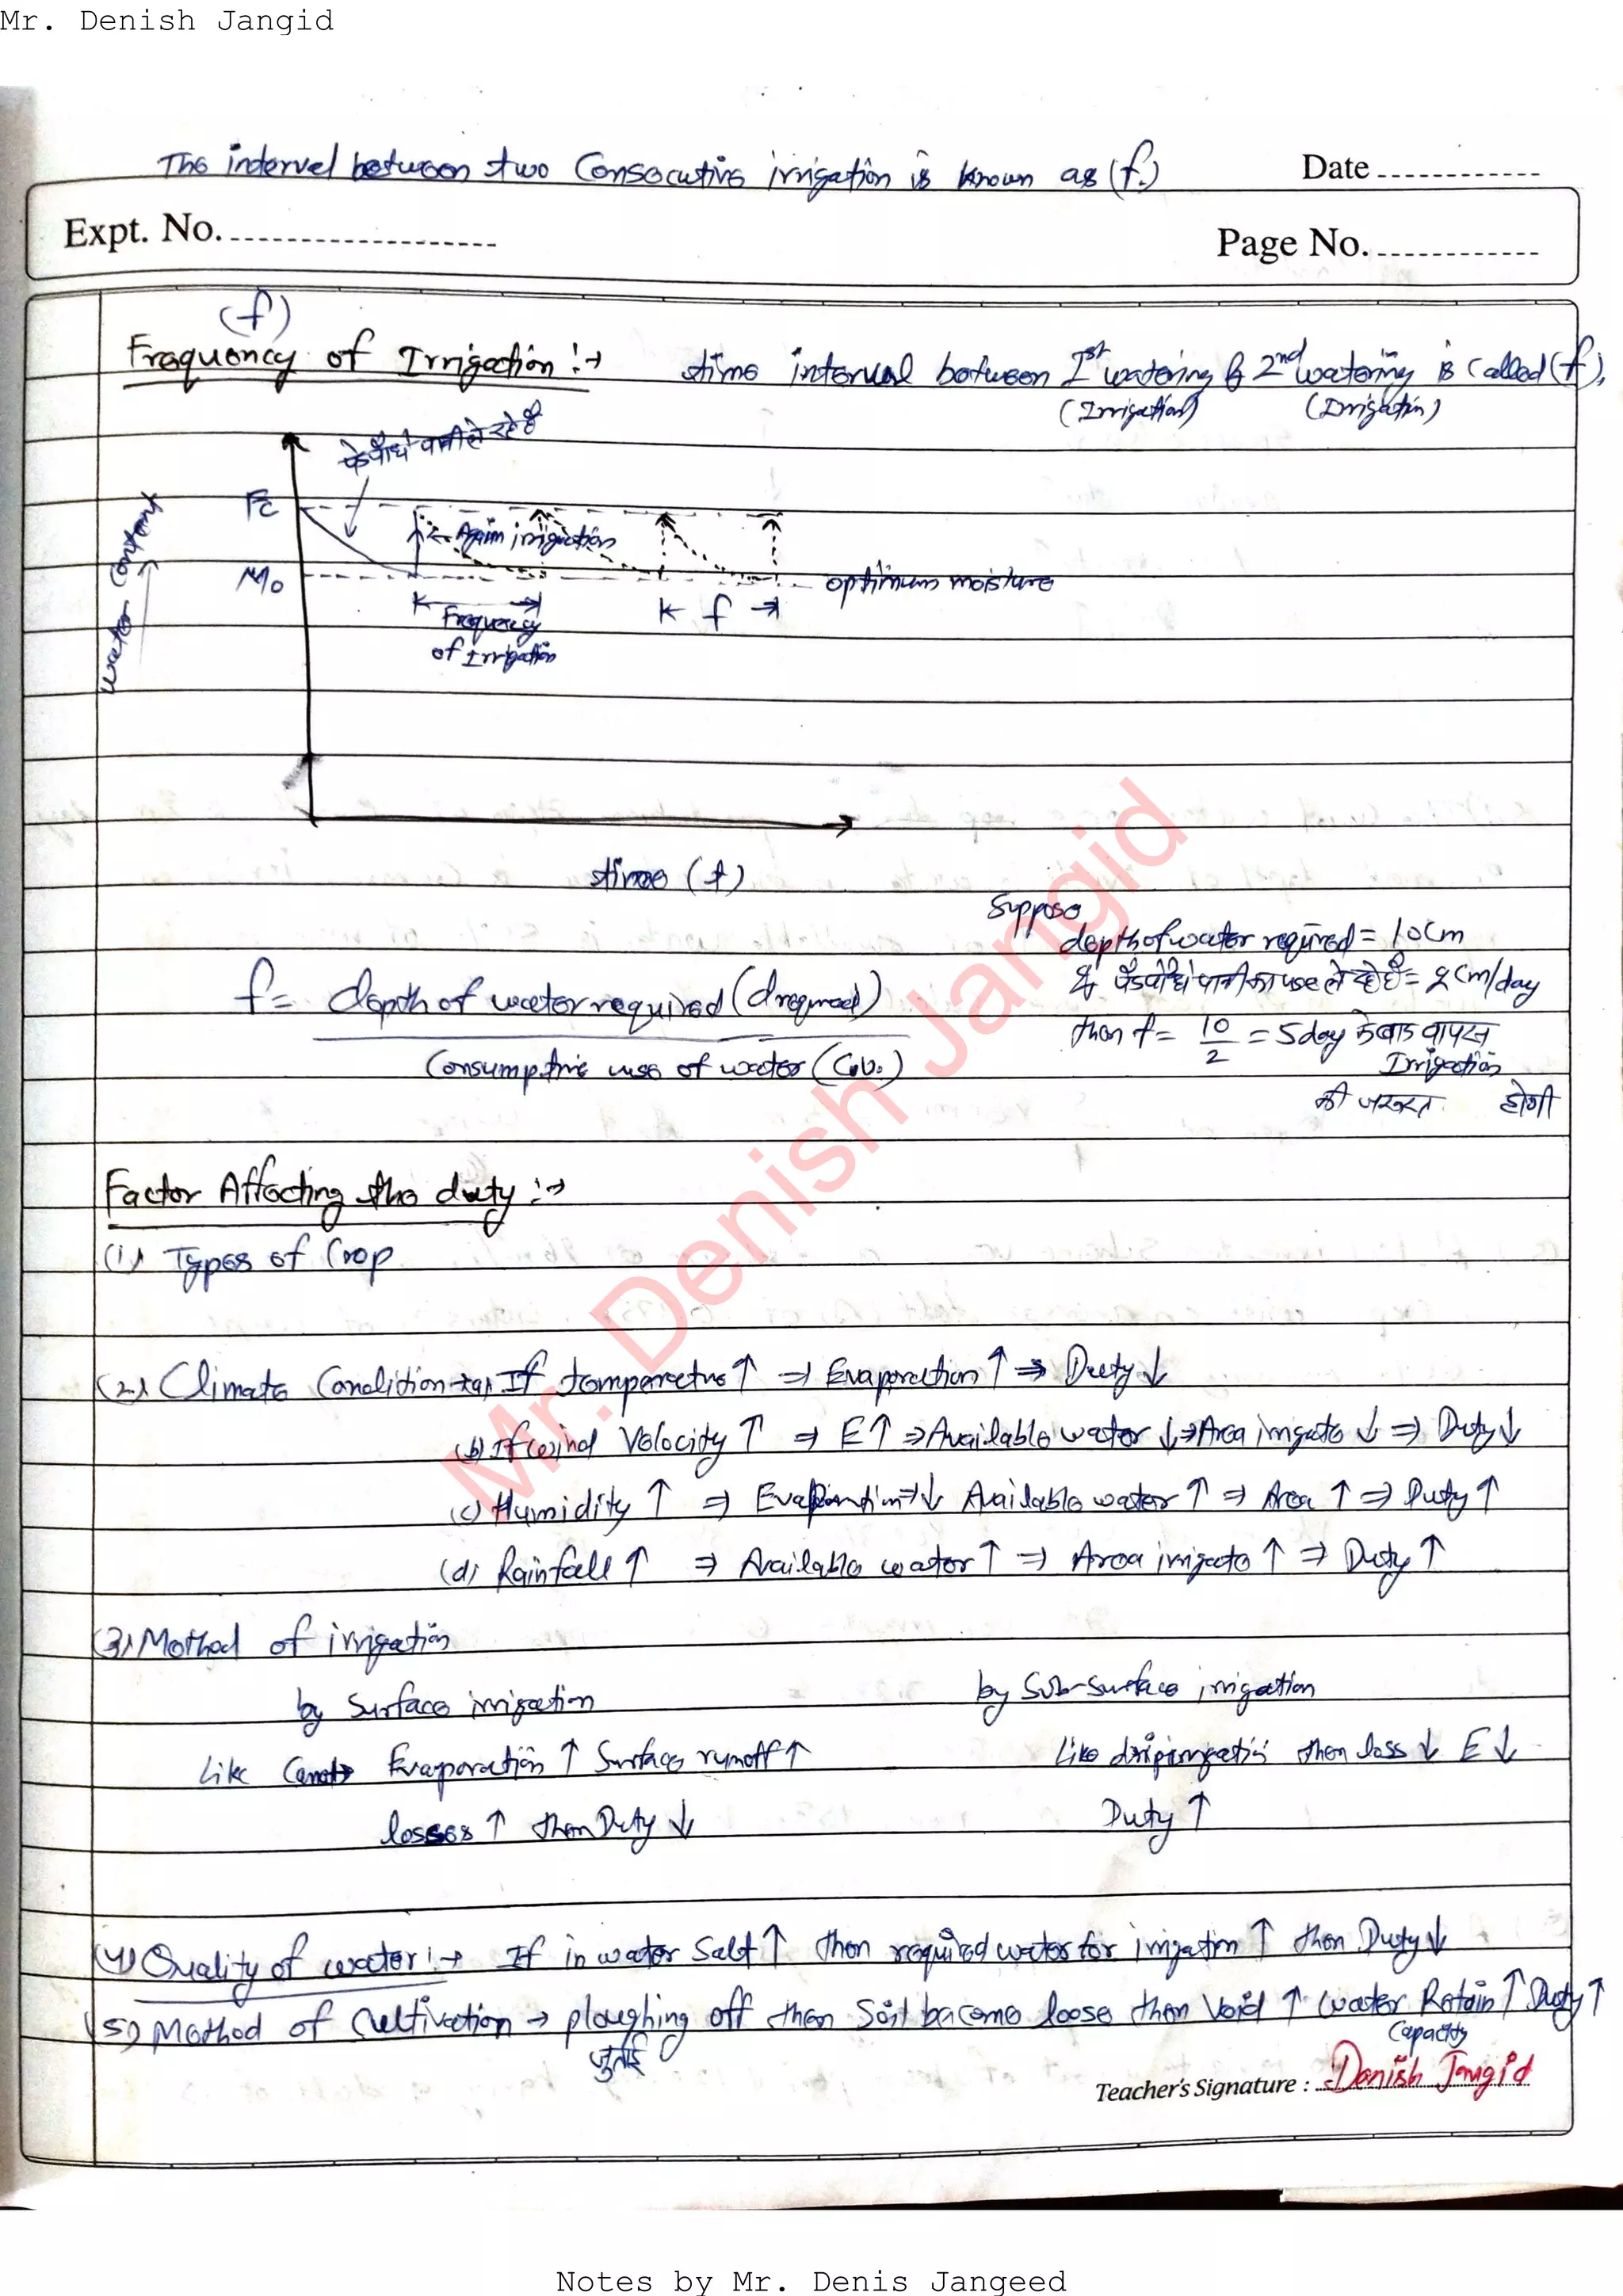 Mr. Denish Jangid
The interval between two Consecutive irrigation is known as (f.)
Date
Expt. No.
Page No.
(f)
Frequency of Irrigation :→ time interval between Ist watering & 2nd watering is called (f),
(Irrigation) (Irrigation)
पौधे पानी ले रहे है
Fc
← Again irrigation
Mo
optimum moisture
water content
Frequency
of Irrigation
f
time (t)
Suppose
depth of water required = 10cm
f = depth of water required (drequired)
Consumptive use of water (Cu.)
& पेड पौधे पानी का use ले रहे है = 2cm/day
then f = 10/2 = 5day के बाद वापस
Irrigation
की जरूरत होगी
Factor Affecting the duty :→
(1) Types of Crop
(2) Climate Condition → (a) If temperature ↑ ⇒ Evaporation ↑ ⇒ Duty ↓
(b) If wind Velocity ↑ ⇒ E↑ ⇒ Available water ↓ ⇒ Area irrigate ↓ ⇒ Duty ↓
(c) Humidity ↑ ⇒ Evaporation ⇒ ↓ Available water ↑ ⇒ Area ↑ ⇒ Duty ↑
(d) Rainfall ↑ ⇒ Available water ↑ ⇒ Area irrigate ↑ ⇒ Duty ↑
(3) Method of irrigation
by Surface irrigation
by Sub-Surface irrigation
Like Canal → Evaporation ↑ Surface runoff ↑
Like drip irrigation then loss ↓ E ↓
losses ↑ then Duty ↓
Duty ↑
(4) Quality of water :→ If in water Salt ↑ then required water for irrigation ↑ then Duty ↓
(5) Method of Cultivation → ploughing off then Soil become loose then Void ↑ water Retain ↑ Duty ↑
जुताई
Capacity
Teacher's Signature : Denish Jangid
Mr. Denish Jangid
Notes by Mr. Denis Jangeed